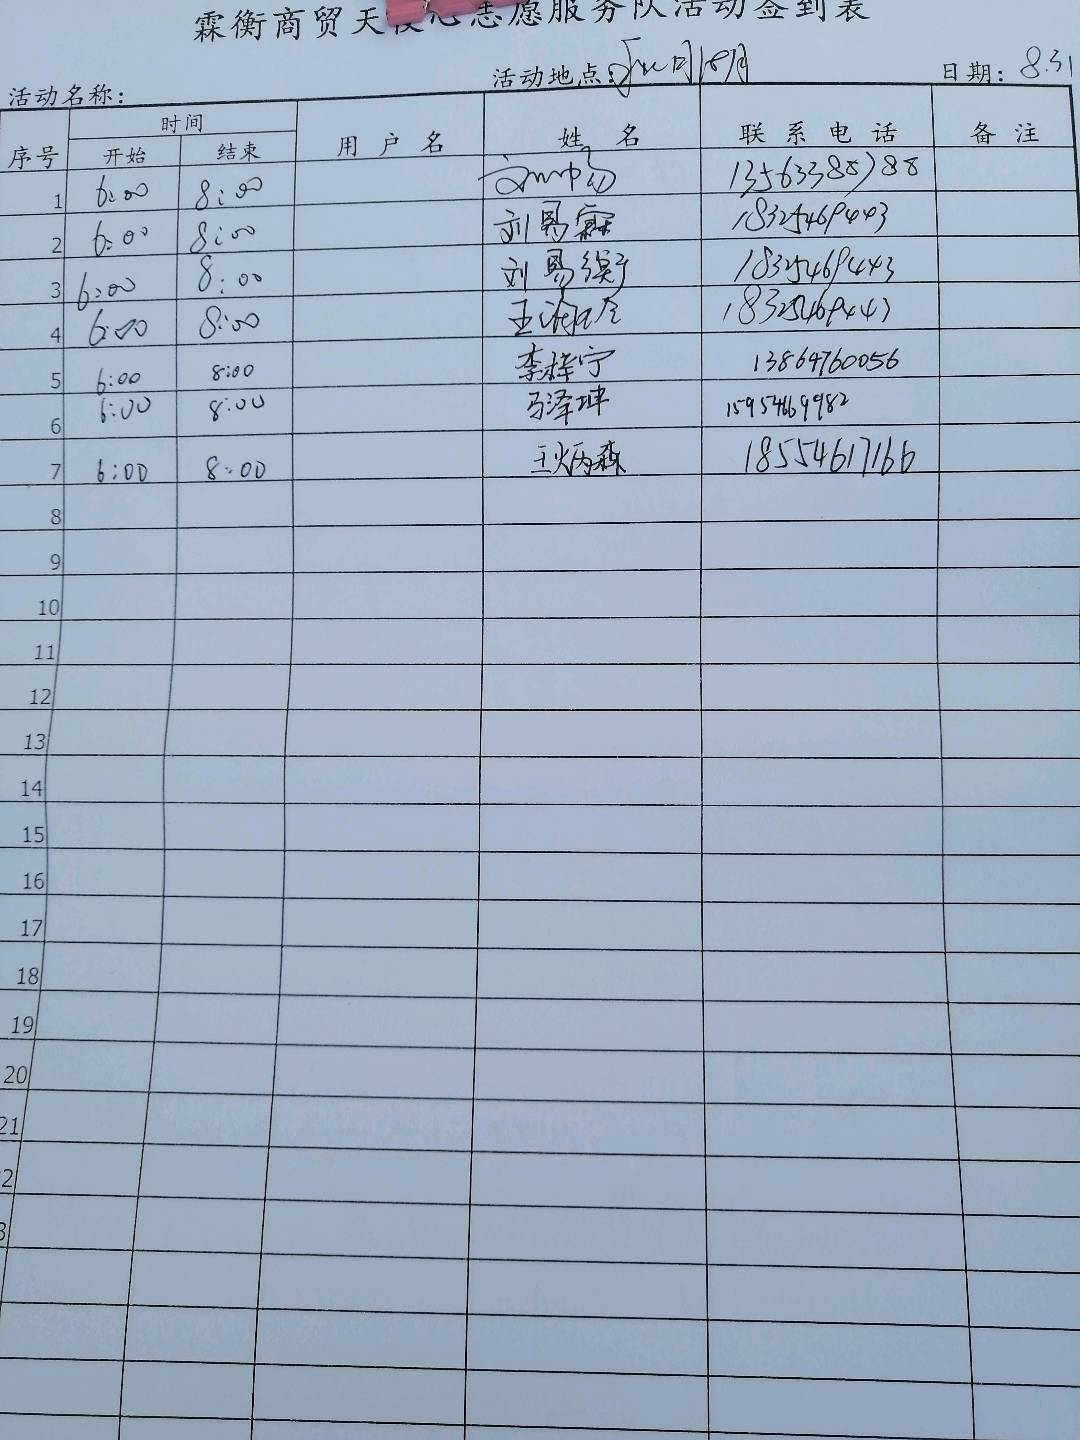 霖衡商贸天使心志愿服务队活动签到表
活动名称: 活动地点: 日期: 8.31
序号 时间 用户名 姓名 联系电话 备注
开始 结束
1 6:00 8:00 13563388788
2 6:00 8:00 刘易霖 18325469443
3 6:00 8:00 刘易衡 18325469443
4 6:00 8:00 王 18325469443
5 6:00 8:00 李梓宁 13864760056
6 6:00 8:00 马泽坤 15954669982
7 6:00 8:00 王炳森 18554617166
8
9
10
11
12
13
14
15
16
17
18
19
20
21
2
3